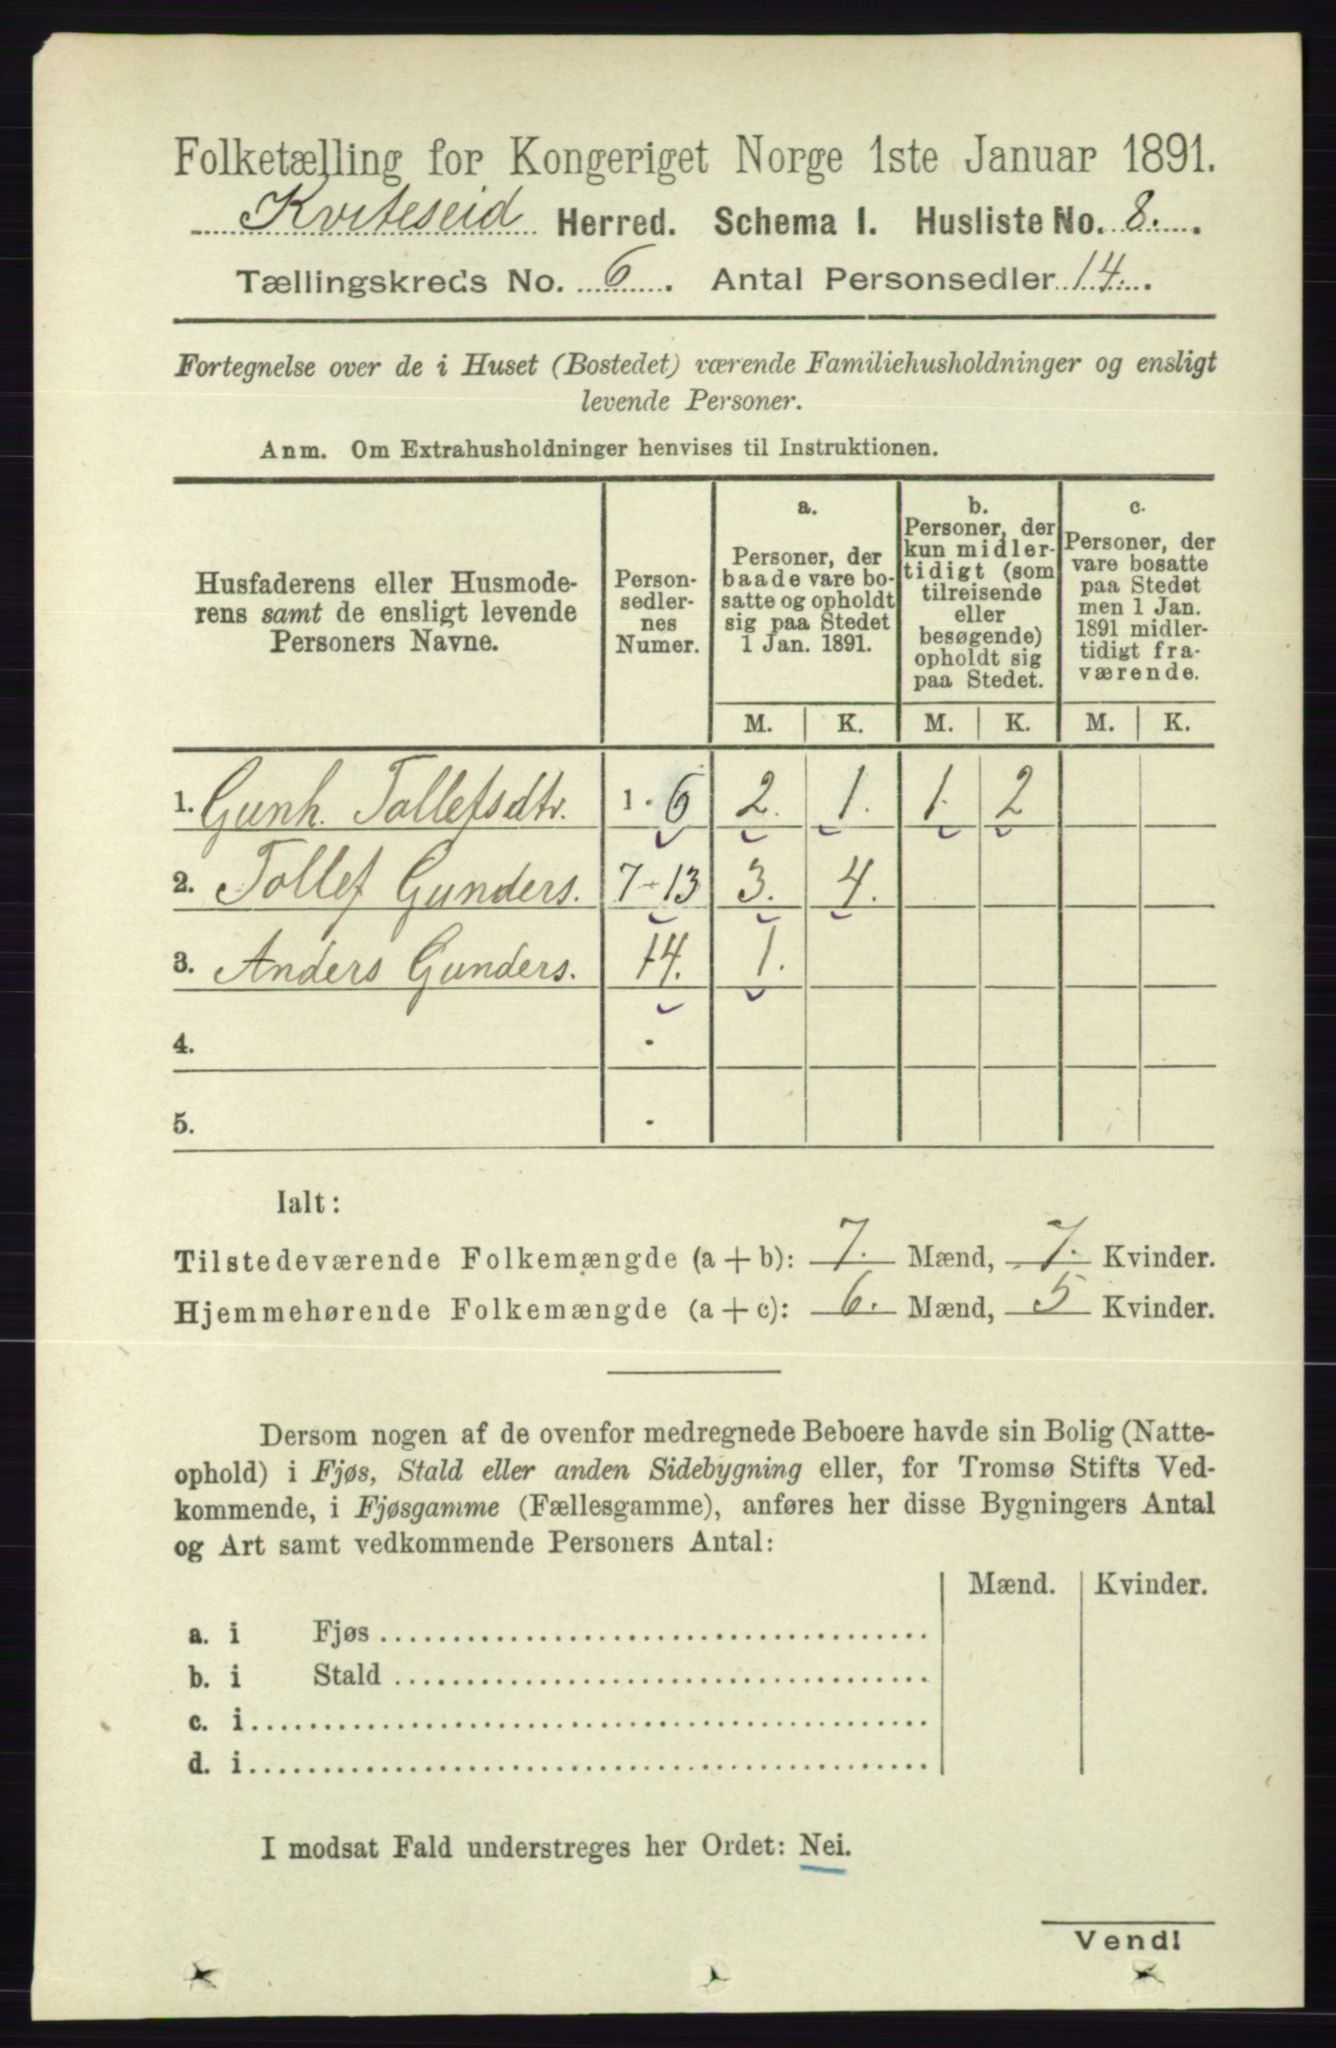 Folketælling for Kongeriget Norge 1ste Januar 1891.
Kviteseid Herred. Schema I. Husliste No. 8.
Tællingskreds No. 6. Antal Personsedler 14.
Fortegnelse over de i Huset (Bostedet) værende Familiehusholdninger og ensligt
levende Personer.
Anm. Om Extrahusholdninger henvises til Instruktionen.
Husfaderens eller Husmode-
rens samt de ensligt levende
Personers Navne.
Person-
sedler-
nes
Numer.
a.
Personer, der
baade vare bo-
satte og opholdt
sig paa Stedet
1 Jan. 1891.
b.
Personer, der
kun midler-
tidigt (som
tilreisende
eller
besøgende)
opholdt sig
paa Stedet.
c.
Personer, der
vare bosatte
paa Stedet
men 1 Jan.
1891 midler-
tidigt fra-
værende.
M. K. M. K. M. K.
1. Gunh. Tollefsdtr. 1 - 6 2. 1. 1. 2
2. Tollef Gunders. 7-13 3. 4.
3. Anders Gunders. 14. 1.
4. -
5. -
Ialt:
Tilstedeværende Folkemængde (a + b): 7. Mænd, 7. Kvinder.
Hjemmehørende Folkemængde (a + c): 6. Mænd, 5 Kvinder.
Dersom nogen af de ovenfor medregnede Beboere havde sin Bolig (Natte-
ophold) i Fjøs, Stald eller anden Sidebygning eller, for Tromsø Stifts Ved-
kommende, i Fjøsgamme (Fællesgamme), anføres her disse Bygningers Antal
og Art samt vedkommende Personers Antal:
Mænd. Kvinder.
a. i Fjøs
b. i Stald
c. i
d. i
I modsat Fald understreges her Ordet: Nei.
Vend!